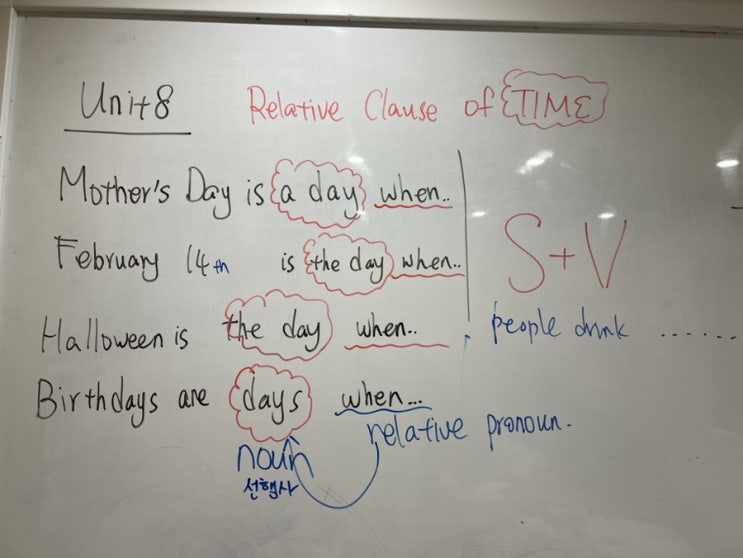 Unit 8
Relative Clause of TIME
Mother's Day is a day when..
February 14th is the day when..
Halloween is the day when..
Birthdays are days when...
S+V
people drink ......
relative pronoun.
noun
선행사